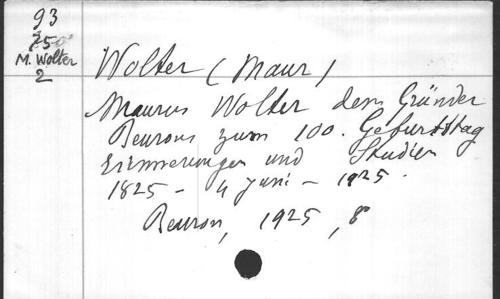 93
750
M. Wolter
2
Wolter (Maur)
Maurus Wolter dem Gründer
Beurons zum 100. Geburtstag
Erinnerungen und Studien
1825 - 4 Juni - 1925.
Beuron, 1925, 8°